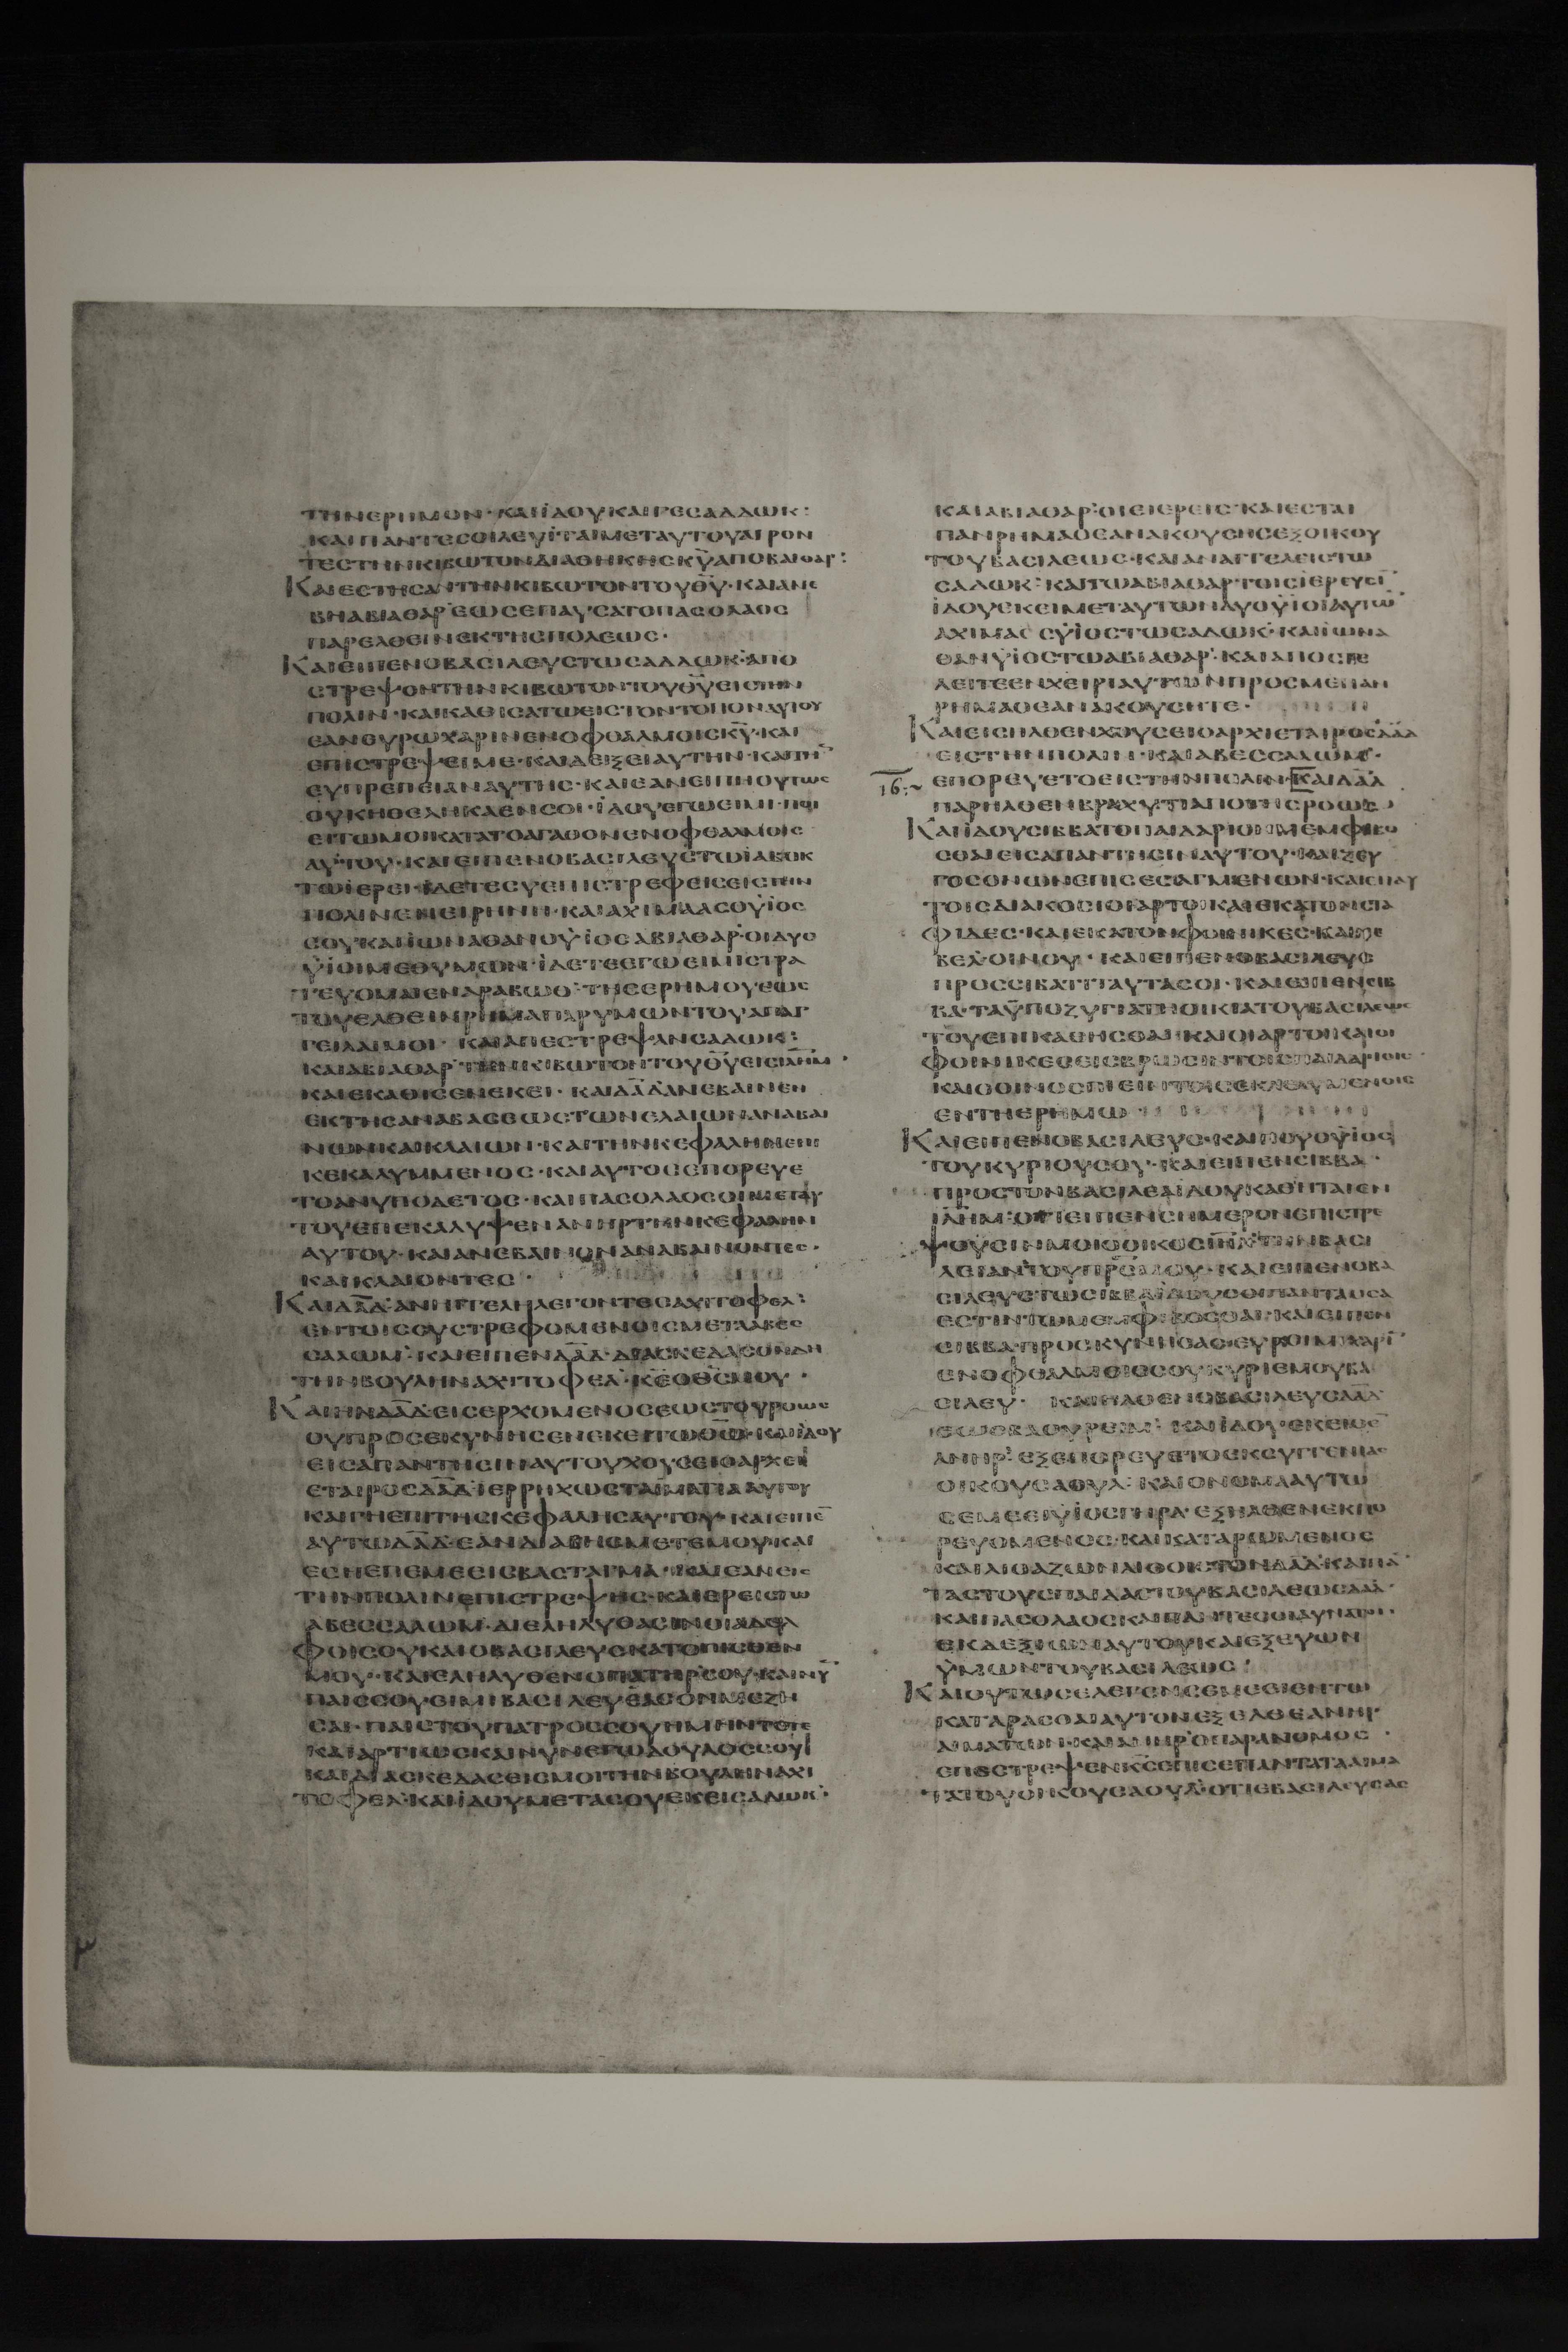 ΤΗΝΕΡΗΜΟΝ·ΚΑΙΪΔΟΥΚΑΙΓΕΣΑΔΔΩΚ:
ΚΑΙΠΑΝΤΕΣΟΙΛΕΥΪΤΑΙΜΕΤΑΥΤΟΥΑΙΡΟΝ
ΤΕΣΤΗΝΚΙΒΩΤΟΝΔΙΑΘΗΚΗΣΚΥΑΠΟΒΑΙΘΑΡ:
ΚΑΙΕΣΤΗΣΑΝΤΗΝΚΙΒΩΤΟΝΤΟΥΘΥ·ΚΑΙΑΝΕ
ΒΗΑΒΙΑΘΑΡ ΕΩΣΕΠΑΥΣΑΤΟΠΑΣΟΛΑΟΣ
ΠΑΡΕΛΘΕΙΝΕΚΤΗΣΠΟΛΕΩΣ·
ΚΑΙΕΙΠΕΝΟΒΑΣΙΛΕΥΣΤΩΣΑΔΔΩΚ·ΑΠΟ
ΣΤΡΕΨΟΝΤΗΝΚΙΒΩΤΟΝΤΟΥΘΥΕΙΣΤΗΝ
ΠΟΛΙΝ·ΚΑΙΚΑΘΙΣΑΤΩΕΙΣΤΟΝΤΟΠΟΝΑΥΤΟΥ
ΕΑΝΕΥΡΩΧΑΡΙΝΕΝΟΦΘΑΛΜΟΙΣΚΥ·ΚΑΙ
ΕΠΙΣΤΡΕΨΕΙΜΕ·ΚΑΙΔΕΙΞΕΙΑΥΤΗΝ·ΚΑΙΤΗ
ΕΥΠΡΕΠΕΙΑΝΑΥΤΗΣ·ΚΑΙΕΑΝΕΙΠΗΟΥΤΩΣ
ΟΥΚΗΘΕΛΗΚΑΕΝΣΟΙ·ΪΔΟΥΕΓΩΕΙΜΙ·ΠΟΙ
ΕΙΤΩΜΟΙΚΑΤΑΤΟΑΓΑΘΟΝΕΝΟΦΘΑΛΜΟΙΣ
ΑΥΤΟΥ·ΚΑΙΕΙΠΕΝΟΒΑΣΙΛΕΥΣΤΩΣΑΔΩΚ
ΤΩΪΕΡΕΙ·ΪΔΕΤΕΣΥΕΠΙΣΤΡΕΦΕΙΣΕΙΣΤΗΝ
ΠΟΛΙΝΕΝΕΙΡΗΝΗ·ΚΑΙΑΧΙΜΑΑΣΟΥΪΟΣ
ΣΟΥΚΑΙΪΩΝΑΘΑΝΟΥΪΟΣΑΒΙΑΘΑΡ·ΟΙΔΥΟ
ΥΪΟΙΜΕΘΥΜΩΝ·ΪΔΕΤΕΕΓΩΕΙΜΙΣΤΡΑ
ΤΕΥΟΜΑΙΕΝΑΡΑΒΩΘ·ΤΗΣΕΡΗΜΟΥΕΩΣ
ΤΟΥΕΛΘΕΙΝΡΗΜΑΠΑΡΥΜΩΝΤΟΥΑΠΑΓ
ΓΕΙΛΑΙΜΟΙ· ΚΑΙΑΠΕΣΤΡΕΨΑΝΣΑΔΩΚ:
ΚΑΙΑΒΙΑΘΑΡ ΤΗΝΚΙΒΩΤΟΝΤΟΥΘΥΕΙΣΙΛΗΜ·
ΚΑΙΕΚΑΘΙΣΕΝΕΚΕΙ· ΚΑΙΔΑΔΑΝΕΒΑΙΝΕΝ
ΕΚΤΗΣΑΝΑΒΑΣΕΩΣΤΩΝΕΛΑΙΩΝΑΝΑΒΑΙ
ΝΩΝΚΑΙΚΛΑΙΩΝ·ΚΑΙΤΗΝΚΕΦΑΛΗΝΕΠΙ
ΚΕΚΑΛΥΜΜΕΝΟΣ·ΚΑΙΑΥΤΟΣΕΠΟΡΕΥΕ
ΤΟΑΝΥΠΟΔΕΤΟΣ·ΚΑΙΠΑΣΟΛΑΟΣΟΜΕΤΑΥ
ΤΟΥΕΠΕΚΑΛΥΨΕΝΑΝΗΡΤΗΝΚΕΦΑΛΗΝ
ΑΥΤΟΥ·ΚΑΙΑΝΕΒΑΙΝΟΝΑΝΑΒΑΙΝΟΝΤΕΣ·
ΚΑΙΚΛΑΙΟΝΤΕΣ·
ΚΑΙΔΑΔ·ΑΝΗΓΓΕΛΗΛΕΓΟΝΤΕΣΑΧΙΤΟΦΕΛ·
ΕΝΤΟΙΣΣΥΣΤΡΕΦΟΜΕΝΟΙΣΜΕΤΑΑΒΕΣ
ΣΑΛΩΜ·ΚΑΙΕΙΠΕΝΔΑΔ·ΔΙΑΣΚΕΔΑΣΟΝΔΗ
ΤΗΝΒΟΥΛΗΝΑΧΙΤΟΦΕΛ·ΚΕΟΘΣΜΟΥ·
ΚΑΙΗΝΔΑΔ·ΕΙΣΕΡΧΟΜΕΝΟΣΕΩΣΤΟΥΡΟΩΣ
ΟΥΠΡΟΣΕΚΥΝΗΣΕΝΕΚΕΙΤΩΘΩ·ΚΑΙΪΔΟΥ
ΕΙΣΑΠΑΝΤΗΣΙΝΑΥΤΟΥΧΟΥΣΕΙΟΑΡΧΕΙ
ΕΤΑΙΡΟΣΔΑΔ·ΔΙΕΡΡΗΧΩΣΤΑΪΜΑΤΙΑΑΥΤΟΥ
ΚΑΙΓΗΕΠΙΤΗΣΚΕΦΑΛΗΣΑΥΤΟΥ·ΚΑΙΕΙΠΕ
ΑΥΤΩΔΑΔ·ΕΑΝΔΙΑΒΗΣΜΕΤΕΜΟΥ·ΚΑΙ
ΕΣΗΕΠΕΜΕΕΙΣΒΑΣΤΑΓΜΑ·ΚΑΙΕΑΝΕΙΣ
ΤΗΝΠΟΛΙΝΕΠΙΣΤΡΕΨΗΣ·ΚΑΙΕΡΕΙΣΤΩ
ΑΒΕΣΣΑΛΩΜ·ΔΙΕΛΗΛΥΘΑΣΙΝΟΙΑΔΕΛ
ΦΟΙΣΟΥΚΑΙΟΒΑΣΙΛΕΥΣΚΑΤΟΠΙΣΘΕΝ
ΜΟΥ·ΚΑΙΕΛΗΛΥΘΕΝΟΠΑΤΗΡΣΟΥ·ΚΑΙΝΥ
ΠΑΙΣΣΟΥΕΙΜΙΒΑΣΙΛΕΥΕΑΣΟΝΜΕΖΗ
ΣΑΙ·ΠΑΙΣΤΟΥΠΑΤΡΟΣΣΟΥΗΜΗΝΤΟΤΕ
ΚΑΙΑΡΤΙΩΣΚΑΙΝΥΝΕΓΩΔΟΥΛΟΣΣΟΥ
ΚΑΙΔΙΑΣΚΕΔΑΣΕΙΣΜΟΙΤΗΝΒΟΥΛΗΝΑΧΙ
ΤΟΦΕΛ·ΚΑΙΪΔΟΥΜΕΤΑΣΟΥΕΚΕΙΣΑΔΩΚ·
ΚΑΙΑΒΙΑΘΑΡ·ΟΙΕΙΕΡΕΙΣ·ΚΑΙΕΣΤΑΙ
ΠΑΝΡΗΜΑΟΕΑΝΑΚΟΥΣΗΣΕΞΟΙΚΟΥ
ΤΟΥΒΑΣΙΛΕΩΣ·ΚΑΙΑΝΑΓΓΕΛΕΙΣΤΩ
ΣΑΔΩΚ·ΚΑΙΤΩΑΒΙΑΘΑΡ·ΤΟΙΣΪΕΡΕΥΣΙ
ΪΔΟΥΕΚΕΙΜΕΤΑΥΤΩΝΔΥΟΥΪΟΙΑΥΤΩ
ΑΧΙΜΑΣ ΣΥΪΟΣΤΩΣΑΔΩΚ·ΚΑΙΪΩΝΑ
ΘΑΝΥΪΟΣΤΩΑΒΙΑΘΑΡ·ΚΑΙΑΠΟΣΤΕ
ΛΕΙΤΕΕΝΧΕΙΡΙΑΥΤΩΝΠΡΟΣΜΕΠΑΝ
ΡΗΜΑΟΕΑΝΑΚΟΥΣΗΤΕ·
ΚΑΙΕΙΣΗΛΘΕΝΧΟΥΣΕΙΟΑΡΧΙΕΤΑΙΡΟΣΔΑΔ
ΕΙΣΤΗΝΠΟΛΙΝ·ΚΑΙΑΒΕΣΣΑΛΩΜ·
16:~ ΕΠΟΡΕΥΕΤΟΕΙΣΤΗΝΠΟΛΙΝ·ΚΑΙΔΑΔ
ΠΑΡΗΛΘΕΝΒΡΑΧΥΤΙΑΠΟΤΗΣΡΟΩΣ
ΚΑΙΪΔΟΥΣΙΒΒΑΤΟΠΑΙΔΑΡΙΟΝΜΕΜΦΙΒΟ
ΣΘΑΙΕΙΣΑΠΑΝΤΗΣΙΝΑΥΤΟΥ·ΚΑΙΖΕΥ
ΓΟΣΟΝΩΝΕΠΙΣΕΣΑΓΜΕΝΩΝ·ΚΑΙΕΠΑΥ
ΤΟΙΣΔΙΑΚΟΣΙΟΙΑΡΤΟΙΚΑΙΕΚΑΤΟΝΣΤΑ
ΦΙΔΕΣ·ΚΑΙΕΚΑΤΟΝΦΟΙΝΙΚΕΣ·ΚΑΙΝΕ
ΒΕΛ·ΟΙΝΟΥ· ΚΑΙΕΙΠΕΝΟΒΑΣΙΛΕΥΣ
ΠΡΟΣΣΙΒΑΤΙΤΑΥΤΑΣΟΙ·ΚΑΙΕΙΠΕΝΣΙΒ
ΒΑ·ΤΑΥΠΟΖΥΓΙΑΤΗΟΙΚΙΑΤΟΥΒΑΣΙΛΕΩΣ
ΤΟΥΕΠΙΚΑΘΗΣΘΑΙ·ΚΑΙΟΙΑΡΤΟΙΚΑΙΟΙ
ΦΟΙΝΙΚΕΣΕΙΣΒΡΩΣΙΝΤΟΙΣΠΑΙΔΑΡΙΟΙΣ·
ΚΑΙΟΟΙΝΟΣΠΙΕΙΝΤΟΙΣΕΚΛΕΛΥΜΕΝΟΙΣ
ΕΝΤΗΕΡΗΜΩ·
ΚΑΙΕΙΠΕΝΟΒΑΣΙΛΕΥΣ·ΚΑΙΠΟΥΟΥΪΟΣ
ΤΟΥΚΥΡΙΟΥΣΟΥ·ΚΑΙΕΙΠΕΝΣΙΒΒΑ·
ΠΡΟΣΤΟΝΒΑΣΙΛΕΑΪΔΟΥΚΑΘΗΤΑΙΕΝ
ΪΛΗΜ·ΟΤΙΕΙΠΕΝΣΗΜΕΡΟΝΕΠΙΣΤΡΕ
ΨΟΥΣΙΝΜΟΙΟΟΙΚΟΣΙΗΛ·ΤΗΝΒΑΣΙ
ΛΕΙΑΝΤΟΥΠΡΣΜΟΥ·ΚΑΙΕΙΠΕΝΟΒΑ
ΣΙΛΕΥΣΤΩΣΙΒΒΑΪΔΟΥΣΟΙΠΑΝΤΑΟΣΑ
ΕΣΤΙΝΤΩΜΕΜΦΙΒΟΣΘΑΙ·ΚΑΙΕΙΠΕΝ
ΣΙΒΒΑ·ΠΡΟΣΚΥΝΗΣΑΣ·ΕΥΡΟΙΜΙΧΑΡΙ
ΕΝΟΦΘΑΛΜΟΙΣΣΟΥΚΥΡΙΕΜΟΥΒΑ
ΣΙΛΕΥ· ΚΑΙΗΛΘΕΝΟΒΑΣΙΛΕΥΣΔΑΔ
ΕΩΣΒΑΟΥΡΕΙΜ· ΚΑΙΪΔΟΥΕΚΕΙΘΕ
ΑΝΗΡ·ΕΞΕΠΟΡΕΥΕΤΟΕΚΣΥΓΓΕΝΙΑΣ
ΟΙΚΟΥΣΑΟΥΛ·ΚΑΙΟΝΟΜΑΑΥΤΩ
ΣΕΜΕΕΙΥΪΟΣΓΗΡΑ·ΕΞΗΛΘΕΝΕΚΠΟ
ΡΕΥΟΜΕΝΟΣ·ΚΑΙΚΑΤΑΡΩΜΕΝΟΣ
ΚΑΙΛΙΘΑΖΩΝΛΙΘΟΙΣ·ΤΟΝΔΑΔ·ΚΑΙΠΑ
ΤΑΣΤΟΥΣΠΑΙΔΑΣΤΟΥΒΑΣΙΛΕΩΣΔΑΔ·
ΚΑΙΠΑΣΟΛΑΟΣΚΑΙΠΑΝΤΕΣΟΙΔΥΝΑΤΟΙ·
ΕΚΔΕΞΙΩΝΑΥΤΟΥΚΑΙΕΞΕΥΩΝ
ΥΜΩΝΤΟΥΒΑΣΙΛΕΩΣ:
ΚΑΙΟΥΤΩΣΕΛΕΓΕΝΣΕΜΕΕΙΕΝΤΩ
ΚΑΤΑΡΑΣΘΑΙΑΥΤΟΝΕΞΕΛΘΕΑΝΗΡ
ΑΙΜΑΤΩΝ·ΚΑΙΑΝΗΡΟΠΑΡΑΝΟΜΟΣ·
ΕΠΕΣΤΡΕΨΕΝΚΣΕΠΙΣΕΠΑΝΤΑΤΑΑΙΜΑ
ΤΑΤΟΥΟΙΚΟΥΣΑΟΥΛ·ΟΤΙΕΒΑΣΙΛΕΥΣΑΣ